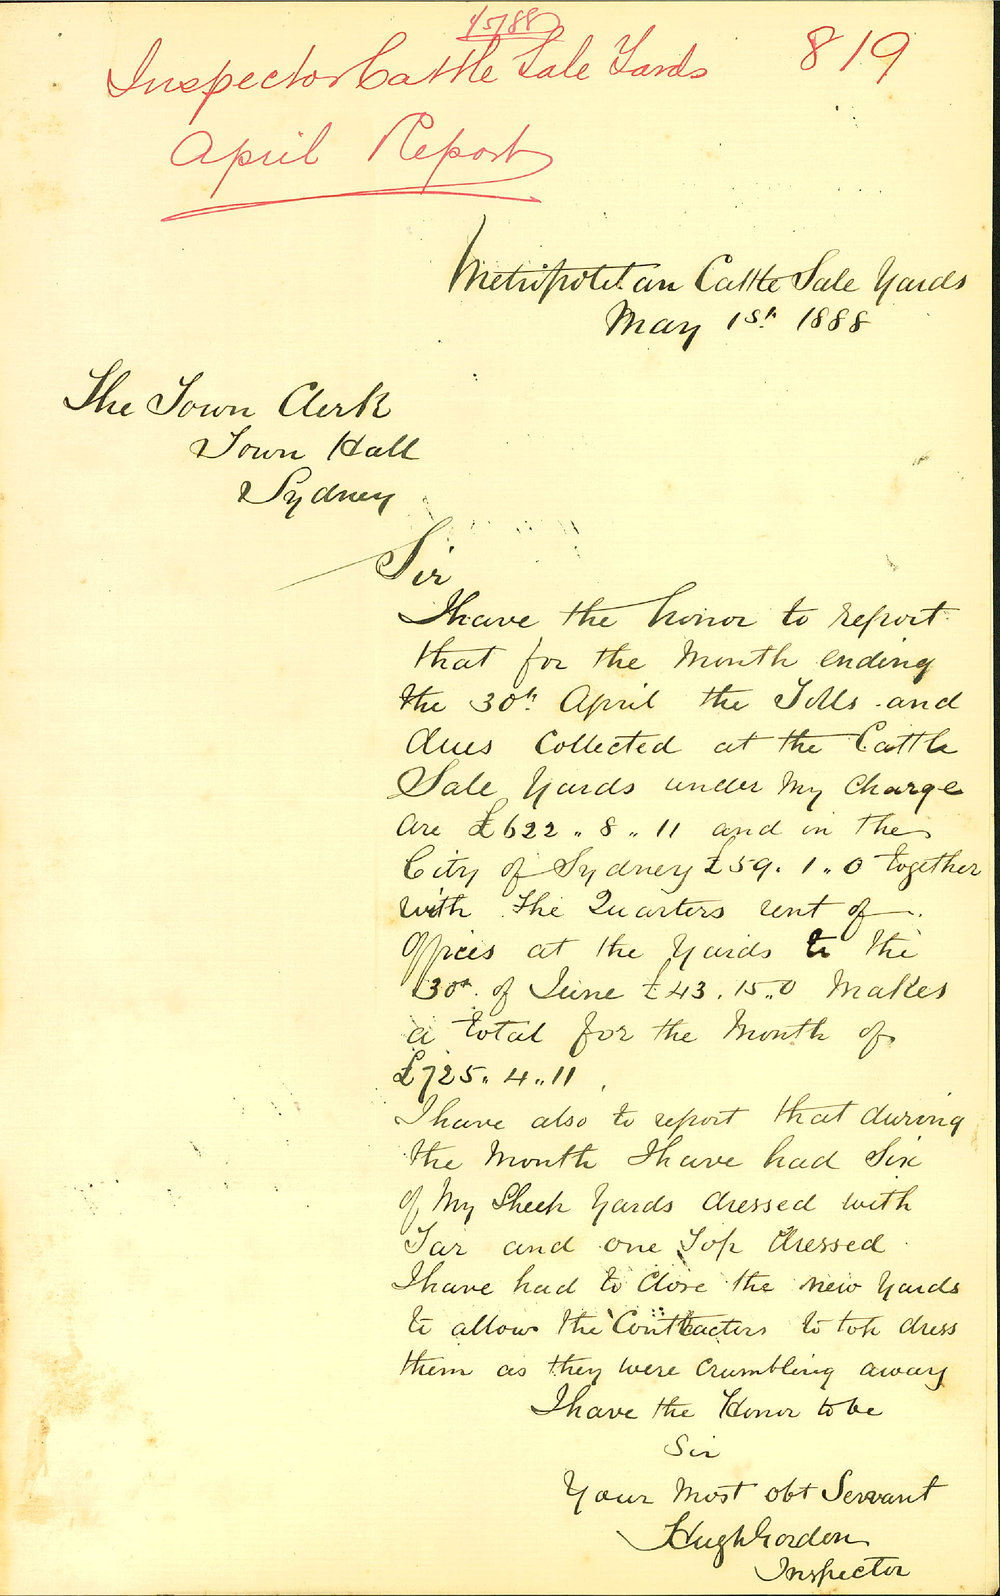 4/5/88
Inspector Cattle Sale Yards 819
April Report
Metropolitan Cattle Sale Yards
May 1st 1888
The Town Clerk
Town Hall
Sydney
Sir
I have the honor to report
that for the Month ending
the 30th April the Tolls and
dues Collected at the Cattle
Sale Yards under My Charge
are £622 . 8 . 11 and in the
City of Sydney £59 . 1 . 0 together
with the Quarters rent of
offices at the Yards to the
30th of June £43 . 15 . 0 Makes
a total for the Month of
£725 . 4 . 11
I have also to report that during
the Month I have had Six
of My Sheep Yards dressed with
Tar and one Top dressed
I have had to Close the new Yards
to allow the Contractors to top dress
them as they were Crumbling away
I have the Honor to be
Sir
Your Most obt Servant
Hugh Gordon
Inspector